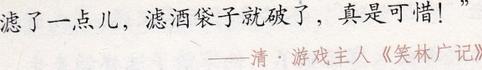 滤了一点儿，滤酒袋子就破了，真是可惜！”
——清·游戏主人《笑林广记》